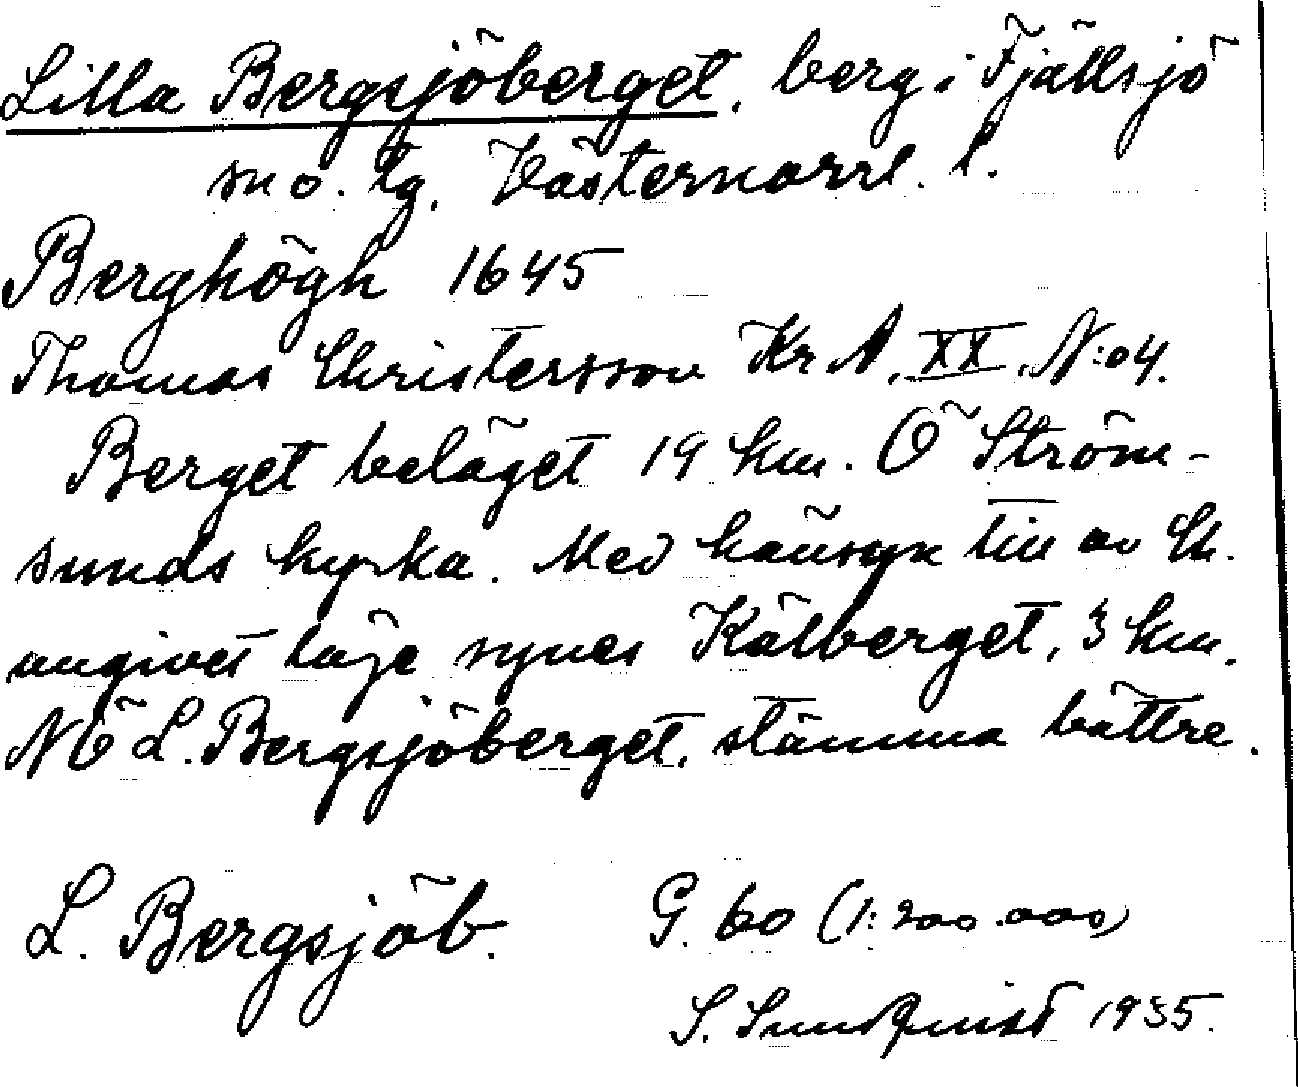 Lilla Bergsjöberget, berg i Fjällsjö
sn o. tg. Västernorrl. l.
Berghögh 1645
Thomas Christersson Kr A, XX, N:o 4.
Berget beläget 19 km. Ö Ström-
sunds kyrka. Med hänsyn till av Ch.
angivet läge synes Kälberget, 3 km.
NÖ L. Bergsjöberget, stämma bättre.
L. Bergsjöb. G. 60 (1:200.000)
S. Sundquist 1935.